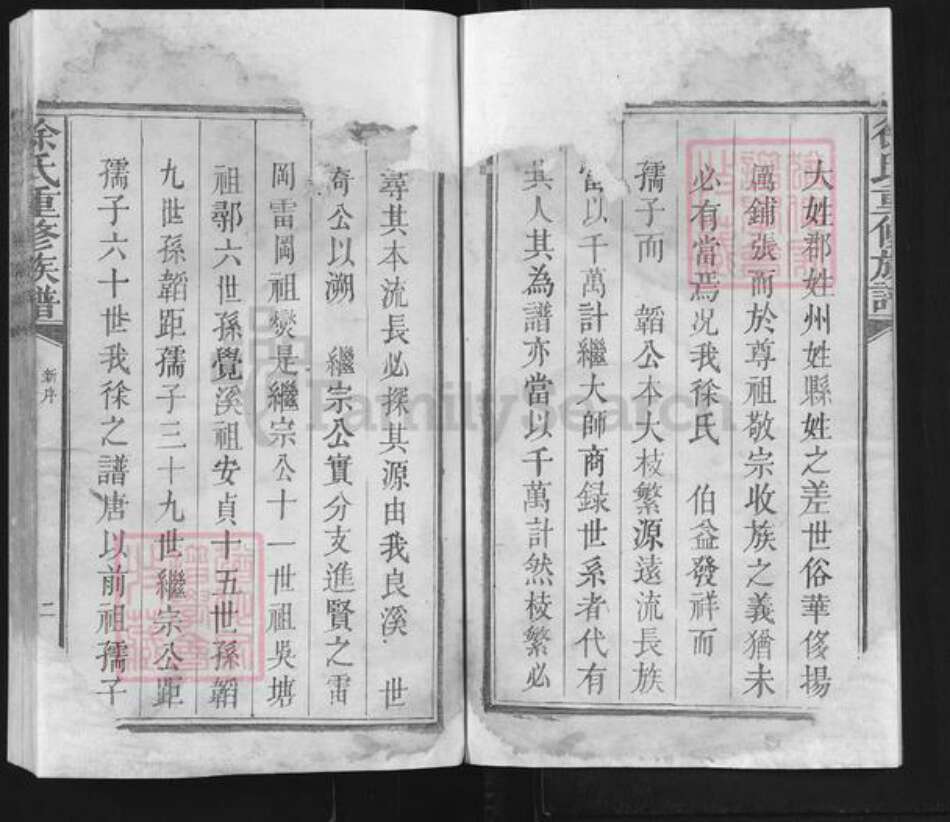 大姓郡姓州姓縣姓之差世俗華侈揚
厲鋪張而於尊祖敬宗收族之義猶未
必有當焉况我徐氏 伯益發祥而
孺子而 韜公本大枝繁源遠流長族
當以千萬計繼大師商録世系者代有
其人其為譜亦當以千萬計然枝繁必
尋其本流長必探其源由我良溪 世
奇公以溯 繼宗公實分支進賢之雷
岡雷岡祖爕是繼宗公十一世祖吳塘
祖鄩六世孫覺溪祖安貞十五世孫韜
九世孫韜距孺子三十九世繼宗公距
孺子六十世我徐之譜唐以前祖孺子
徐氏重修族譜
新序
二
徐氏重修族譜
FamilySearch